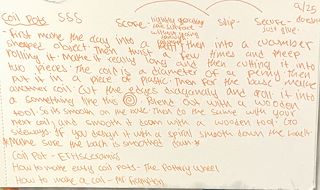 Coil Pots SSS
9/25
Score- lightly scoring slip- Secure- doesn't
just glue.
-First make the clay into a then into a
shaped object. Then twist a few times and keep
rolling it. Make it really long and then cutting it into
two pieces. The coil is a diameter of a penny then
put it in a piece of plastic. Then for the base make
another coil. Cut the edges diagonally and roll it into
a something like this Blend out with a wooden
tool so its smooth on the base. Then do the same with your
next coil and smooth it down with a wooden tool. Go
sideways. If you design it with a spiral smooth down the back
*Make sure the back is smoothed down.*
Coil Pot -
How to make easy coil pots - The Pottery Wheel
How to make a coil -